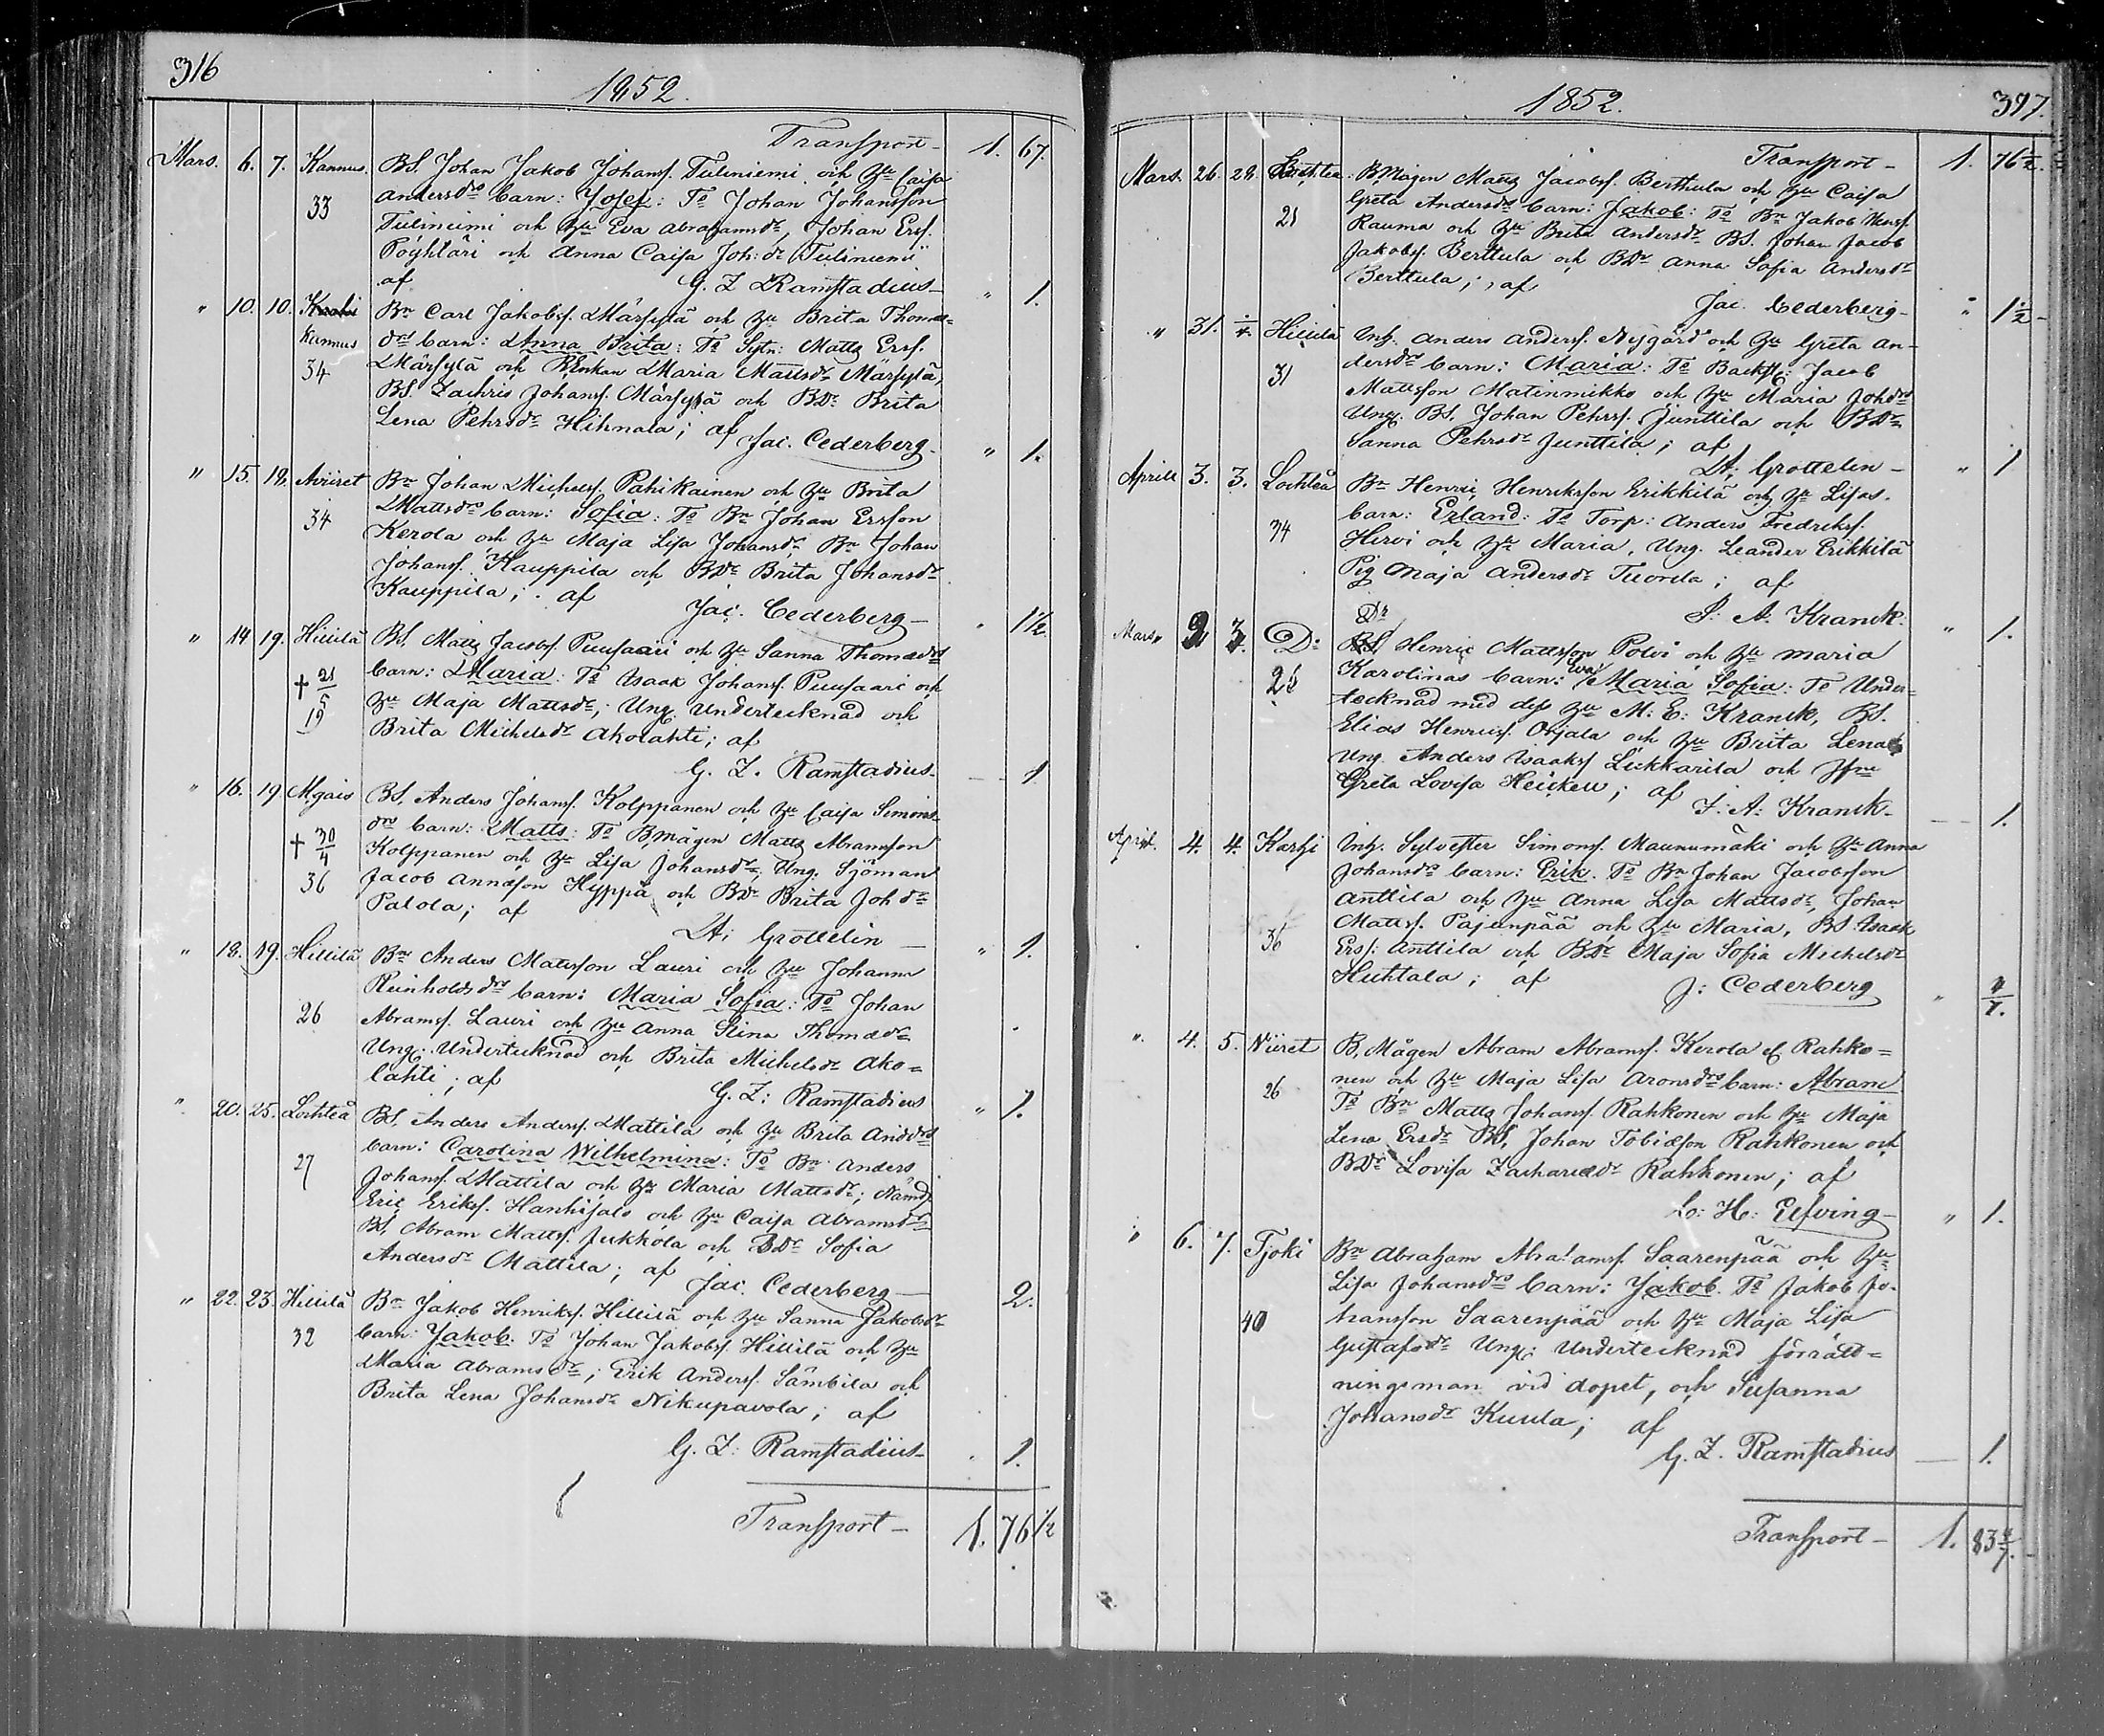 316
1852.
Transport — 1. 67.
Mars. 6. 7. Kannus. BS. Johan Jakob Johans. Tuliniemi och Hu Caisa
33 Andersdrs barn: Josef: Te Johan Johansson
Tuliniemi och Hu Eva Abrahamsdr, Johan Ers.
Pöyhtäri och Anna Caisa Joh:dr Tuliniemi
af G. Z Ramstadius — " 1.
" 10. 10. Bn Carl Jakobs. Märsylä och Hu Brita Thomæ-
Kannus drs barn: Anna Brita: Te Sytn: Matts Ers.
34 Märsylä och Enkan Maria Mattsdr Märsylä,
BS. Zachris Johans. Märsylä och BDr Brita
Lena Pehrsdr Hihnala; af Jac. Cederberg. " 1.
" 15. 18. Bn Johan Michels. Pahikainen och Hu Brita
34 Mattsdrs barn: Sofia: Te Bn Johan Ersson
Kerola och Hu Maja Lisa Johansdr Bn Johan
Johans. Kauppila och BDr Brita Johansdr
Kauppila; af Jac. Cederberg — 1 1/2
" 14 19. Hillilä BS. Matts Jacobs. Puusaari och Hu Sanna Thomædrs
† 21/5 barn: Maria: Te Isaak Johans. Puusaari och
19 Hu Maja Mattsdr, Ung. Undertecknad och
Brita Michelsdr Akolahti; af
G. Z. Ramstadius — 1
" 16. 19 BS. Anders Johans. Kolppanen och Hu Caisa Simons-
† 30/4 drs barn: Matts: Te Bmågen Matts Abramsson
36 Kolppanen och Hu Lisa Johansdr, Ung. Sjöman
Jacob Annæson Hyppä och BDr Brita Johdr
Palola; af A; Grottelin — " 1.
" 18. 19. Hillilä Bn Anders Mattsson Lauri och Hu Johanna
Reinholdsdrs barn: Maria Sofia: Te Johan
26 Abrams. Lauri och Hu Anna Stina Thomædr
Ung: Undertecknad och Brita Michelsdr Ako=
lahti; af G. Z: Ramstadius " 1.
" 20. 25. Lochteå BS, Anders Anders. Mattila och Hu Brita Anddrs
27 barn: Carolina Wilhelmina: Te Bn Anders
Johans. Mattila och Hu Maria Mattsdr; Nämdj
Eric Eriks. Hanhisalo och Hu Caisa Abramsdr
BS, Abram Matts. Jukkola och BDr Sofia
Andersdr Mattila; af Jac. Cederberg — 2.
" 22. 23. Hillilä Bn Jakob Henriks. Hillilä och Hu Sanna Jakobsdr
32 barn: Jakob. Te Johan Jakobs. Hillilä och Hu
Maria Abramsdr; Erik Anders. Såmbila och
Brita Lena Johansdr Nikupavola; af
G. Z: Ramstadius — " 1.
Transport — 1. 76 1/2
1852. 317.
Transport — 1. 76 1/2.
Mars. 26. 28. Lochteå: Bmågen Matts Jacobs. Berttula och Hu Caisa
21 Greta Andersdrs barn: Jakob: Te Bn Jakob
Rauma och Hu Brita Andersdr BS. Johan Jacob
Jakobs. Berttula och BDr Anna Sofia Andersdr
Berttula; af
Jac. Cederberg — " 1 1/2 —
" 31. 1/4. Hillilä Inh. Anders Anders. Nygård och Hu Greta An-
31 dersdrs barn: Maria: Te Backst: Jacob
Mattsson Matinmikko och Hu Maria Johdrs
Ung. BS. Johan Pehrs. Junttila och BDr
Sanna Pehrsdr Junttila; af
A; Grottelin — " 1
Aprill 3. 3. Lochteå Bn Henric Henriksson Erikkilä och Hu Lisas.
34 barn: Erland: Te Torp: Anders Fredriks.
Hirvi och Hu Maria, Ung. Leander Erikkilä
Pig Maja Andersdr Tuorila; af
F. A. Kranck. " 1.
Mars 2 3. Do Dr Henric Mattsson Polvi och Hu Maria
28 Karolinas barn: Eva Maria Sofia: Te Under-
tecknad med dess Hu M. E: Kranck, BS.
Elias Henriks. Orjala och Hu Brita Lena
Ung. Anders Isaaks Liikkarila och Jfru
Greta Lovisa Heicken; af F. A: Kranck. — 1.
April. 4. 4. Karhi Inh. Sylvester Simons. Maunumäki och Hu Anna
Johansdrs barn: Erik. Te Bn Johan Jacobsson
Anttila och Hu Anna Lisa Mattsdr, Johan
36 Matts. Pajunpää och Hu Maria, BS. Isaak
Ers. Anttila och BDr Maja Sofia Michelsdr
Huhtala; af J: Cederberg
" 4. 5. Niiret B, Mågen Abram Abrams. Kerola el Rahko=
26 nen och Hu Maja Lisa Aronsdrs barn: Abram
Te Bn Matts Johans. Rahkonen och Hu Maja
Lena Ersdr BS, Johan Tobiæson Rahkonen och
BDr Lovisa Zachariædr Rahkonen; af
Lo: H: Elfving — " 1.
" 6. 7. Tjoki Bn Abraham Abra:ams. Saarenpää och Hu
40 Lisa Johansdrs barn: Jakob. Te Jakob Jo-
hansson Saarenpää och Hu Maja Lisa
Gustafsdr Ung: Undertecknad förrätt=
ningsman vid dopet, och Susanna
Johansdr Kuula; af
G. Z. Ramstadius — 1.
Transport — 1. 83